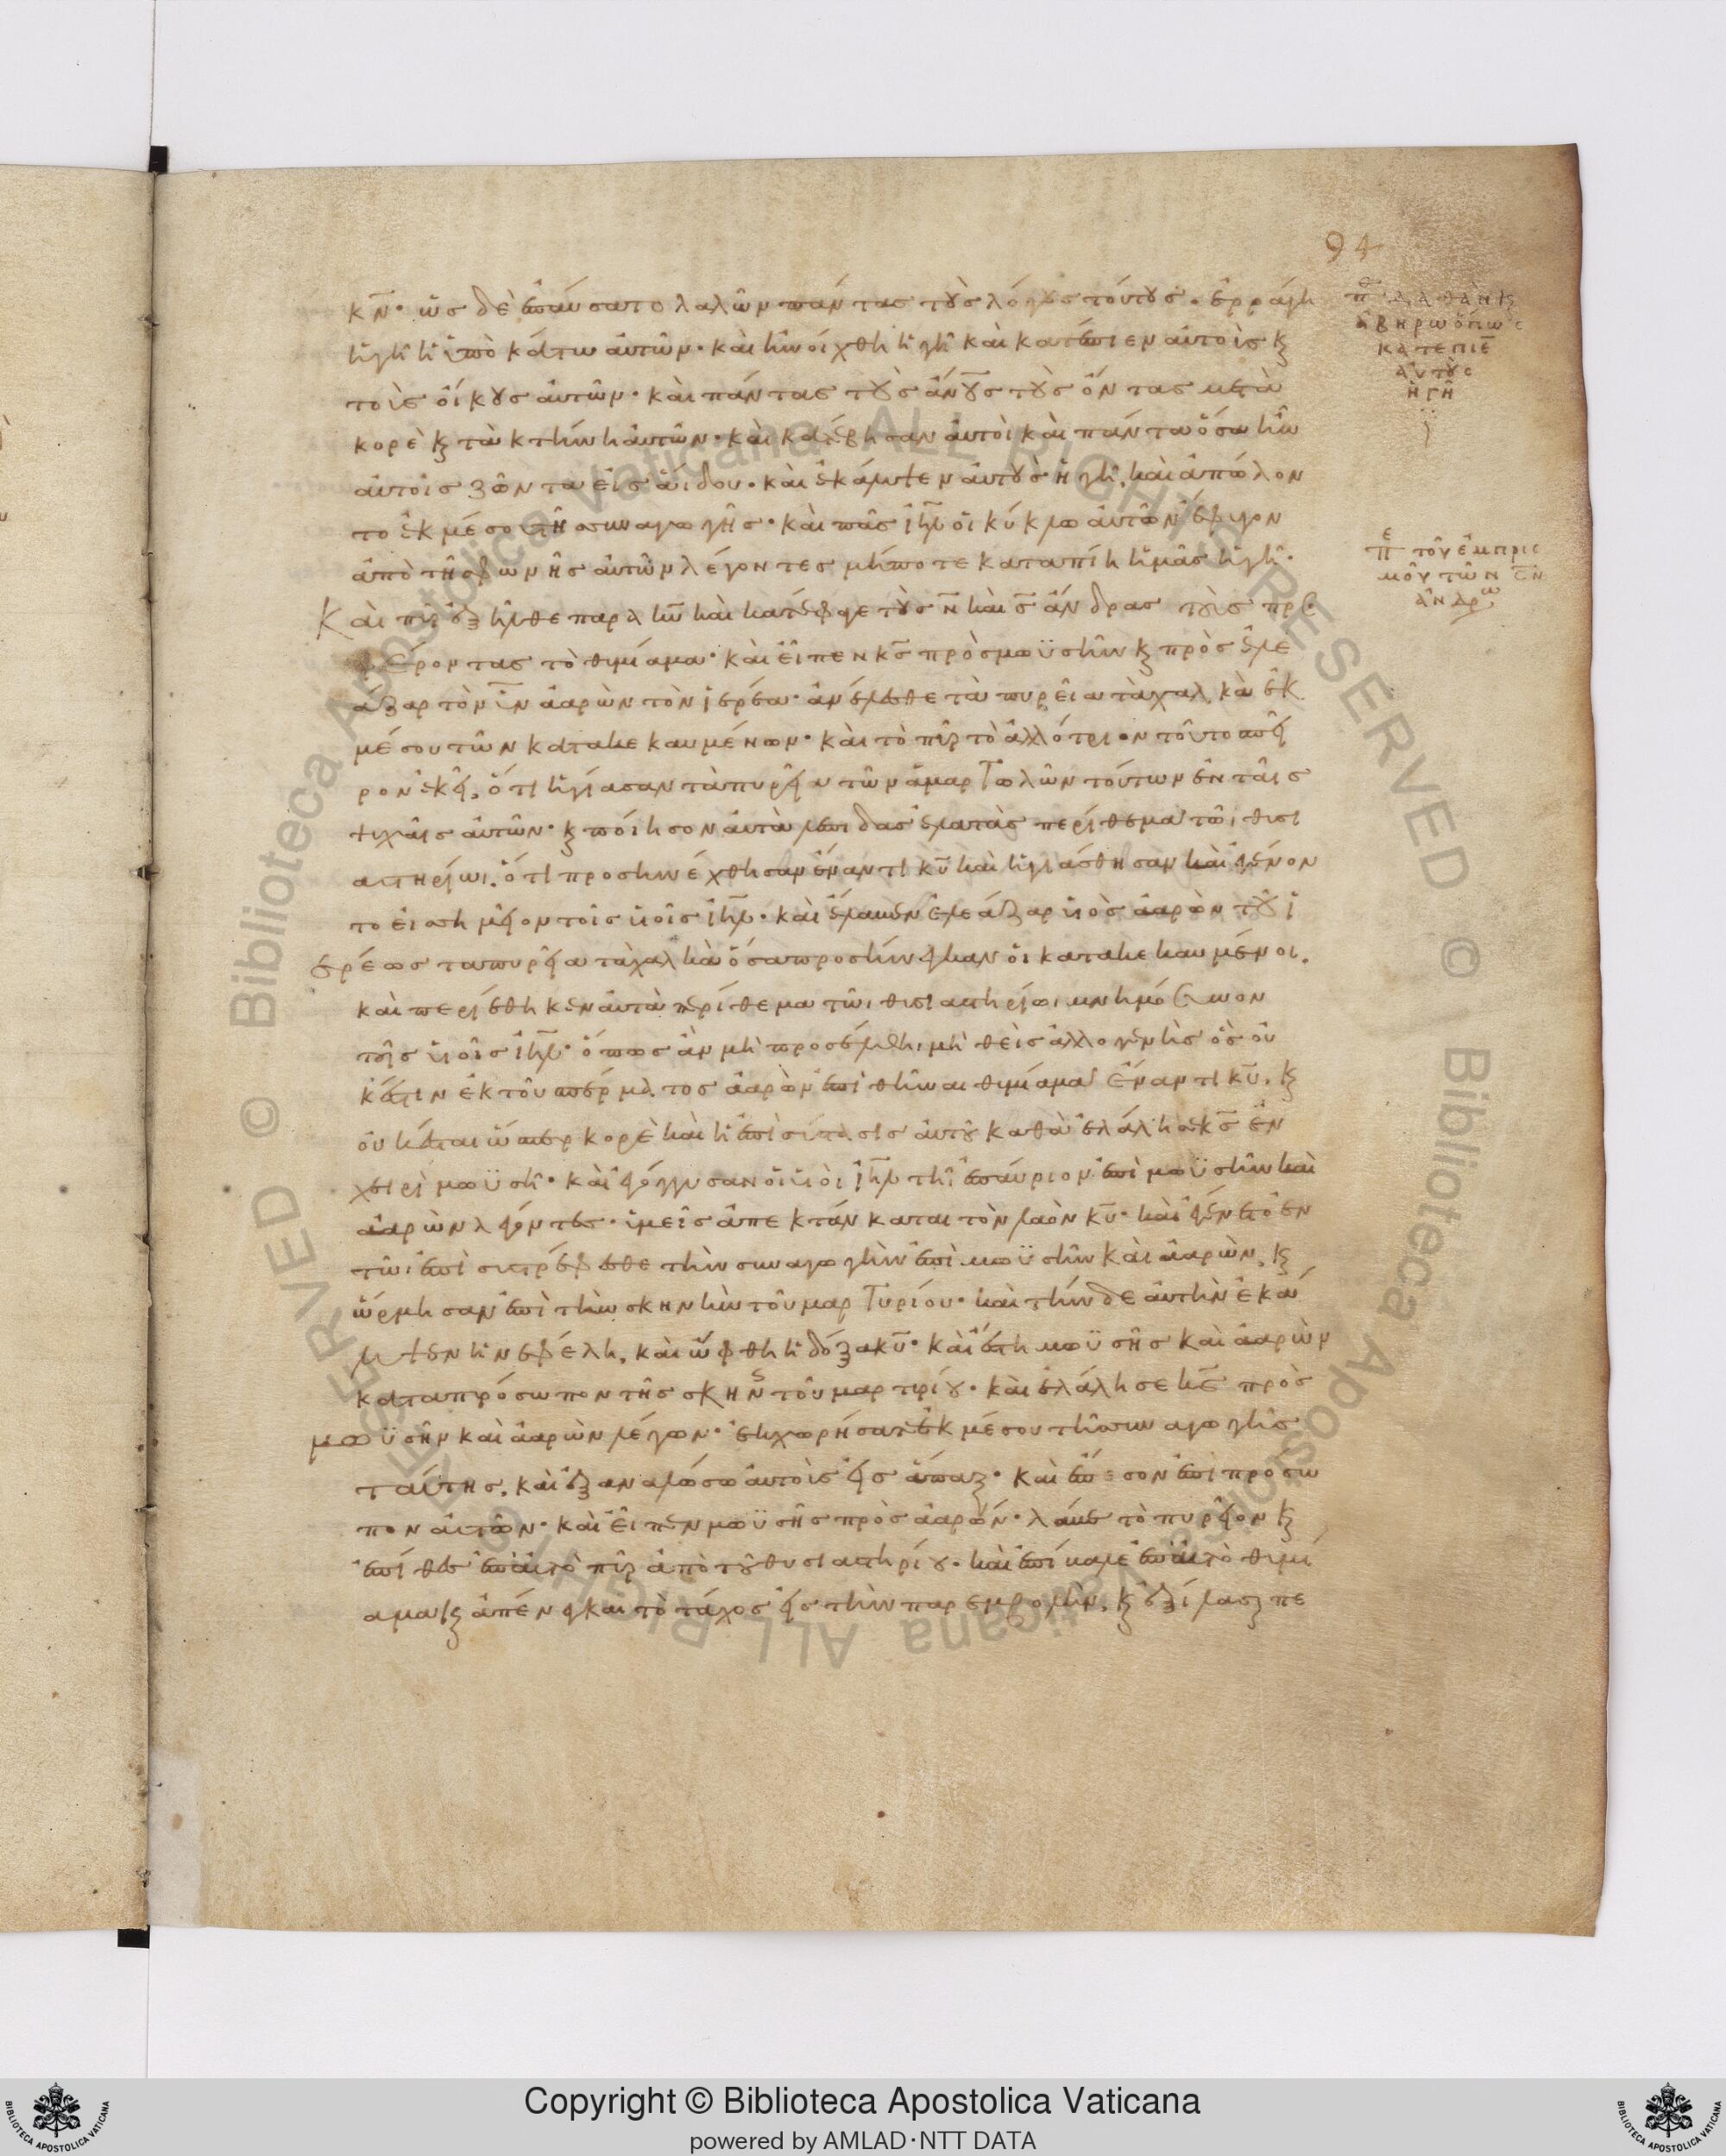 94
κν̄· ὡς δὲ ἐπαύσατο λαλῶν πάντας τοὺς λόγους τούτους. ἐρράγη
ἡ γῆ ὑπὸ κάτω αὐτῶν· καὶ ἠνοίχθη ἡ γῆ καὶ κατέπιεν αὐτοὺς κ̀
τοὺς οἴκους αὐτῶν· καὶ πάντας τοὺς ἀν̄ους τοὺς ὄντας μετὰ
κορὲ κ̀ τὰ κτήνη αὐτῶν· καὶ κατέβησαν αὐτοὶ καὶ πάντα ὅσα ἦν
αὐτοῖς ζῶντα εἰς ἅιδου· καὶ ἐκάλυψεν αὐτοὺς ἡ γῆ. καὶ ἀπώλον
το ἐκ μέσου τῆς συναγωγῆς· καὶ πᾶς ιη̄λ οἱ κύκλω αὐτῶν ἔφυγον
ἀπὸ τῆς φωνῆς αὐτῶν λέγοντες μήποτε καταπίη ἡμᾶς ἡ γῆ·
Καὶ πῦρ ἐξῆλθε παρὰ κῡ καὶ κατέφαγε τοὺς ν̄ καὶ σ̄ ἄνδρας τοὺς προσ
φέροντας τὸ θυμίαμα· καὶ εἶπεν κς̄ πρὸς μωϋσῆν κ̀ πρὸς ἐλε
άζαρ τὸν ῡν ἀαρὼν τὸν ἱερέα· ἀνέλεσθε τὰ πυρεῖα τὰ χαλκᾶ ἐκ
μέσου τῶν κατακεκαυμένων· καὶ τὸ πῦρ τὸ ἀλλότριον τοῦτο σπεῖ
ρον ἐκεῖ. ὅτι ἡγίασαν τὰ πυρεῖα τῶν ἁμαρτωλῶν τούτων ἐν ταῖς
ψυχαῖς αὐτῶν· κ̀ ποίησον αὐτὰ λεπίδας ἐλατὰς περίθεμα τῶι θυσι
αστηρίωι. ὅτι προσηνέχθησαν ἔναντι κῡ καὶ ἡγιάσθησαν καὶ ἐγένον
το εἰς σημεῖον τοῖς υἱοῖς ιη̄λ· καὶ ἔλαβεν ἐλεάζαρ υἱὸς ἀαρὼν τοῦ ἱ
ερέως τα πυρεῖα τὰ χαλκᾶ ὅσα προσήνεγκαν οἱ κατακεκαυμένοι.
καὶ περιέθηκεν αὐτὰ περίθεμα τῶι θυσιαστηρίωι μνημόσυνον
τοῖς υἱοῖς ιη̄λ· ὅπως ἂν μὴ προσέλθη μηθεὶς ἀλλογενὴς ὃς οὐ
κ ἔστιν ἐκ τοῦ σπέρματος ἀαρὼν ἐπιθῆναι θυμίαμα ἔναντι κῡ. κ̀
οὐκ ἔσται ὥσπερ κορὲ καὶ ἡ ἐπισύστασις αὐτοῦ καθὰ ἐλάλησε κς̄ ἐν
χειρὶ μωϋσῆ· καὶ ἐγόγγυσαν οἱ υἱοὶ ιη̄λ τῆι ἐπαύριον ἐπὶ μωϋσῆν καὶ
ἀαρὼν λέγοντες· ὑμεῖς ἀπεκτάνκαται τὸν λαὸν κῡ· καὶ ἐγένετο ἐν
τῶι ἐπισυστρέφεσθε τὴν συναγωγὴν ἐπὶ μωϋσῆν καὶ ἀαρὼν. κ̀
ὥρμησαν ἐπὶ τὴν σκηνὴν τοῦ μαρτυρίου· καὶ τήνδε αὐτὴν ἐκά
λυψεν ἡ νεφέλη. καὶ ὤφθη ἡ δόξα κῡ· καὶ ἔστη μωϋσῆς καὶ ἀαρὼν
κατα πρόσωπον τῆς σκηνῆς τοῦ μαρτυρίου· καὶ ἐλάλησε κς̄ πρὸς
μωϋσῆν καὶ ἀαρὼν λέγων· ἐκχωρήσατε ἐκ μέσου τῆς συναγωγῆς
ταύτης. καὶ ἐξαναλώσω αὐτοὺς εἰς ἅπαξ· καὶ ἔπεσον ἐπι προσω
πον αὐτῶν· καὶ εἶπεν μωϋσῆς πρὸς ἀαρών· λάβε τὸ πυρεῖον κ̀
ἐπίθες ἐπ' αὐτὸ πῦρ ἀπὸ τοῦ θυσιαστηρίου· καὶ ἐπίβαλε ἐπ' αὐτὸ θυμί
αμα κ̀ ἀπένεγκαι τὸ τάχος εἰς τὴν παρεμβολὴν. κ̀ ἐξίλασαι πε
Πε ΔΑΘΑΝ Κ̀
ἈΒΗΡΩ ὍΠΩς
ΚΑΤΕΠΙΕ̄
ἈΥΤΟΥς
Ἡ ΓΗ͂
Πε ΤΟΥ͂ ἘΜΠΡΙς
ΜΟΥ͂ ΤΩ͂Ν ς̄Ν̄
ἈΝΔΡω